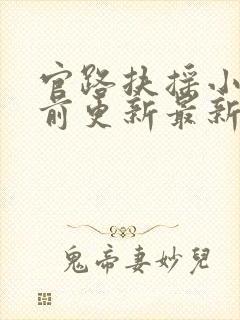 官路扶摇小
前更新最新
鬼帝妻妙兒